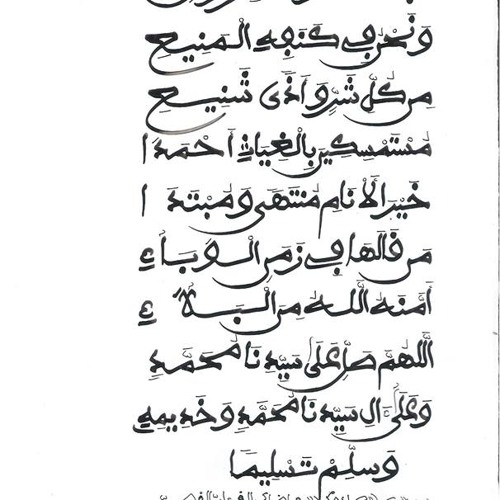 وَنَحْنُ فِي كَنَفِهِ الْمَنِيعِ
مِن كُلِّ شَرٍّ وَأَذًى شَنِيعِ
مُسْتَمْسِكِينَ بِالْغِيَاثِ أَحْمَدَا
خَيْرِ الْأَنَامِ مُنْتَهًى وَمُبْتَدَا
مَن قَالَهَا فِي زَمَنِ الْوَبَاءِ
أَمَّنَهُ اللَّهُ مِنَ الْبَلَاءِ
اَللَّهُمَّ صَلِّ عَلَى سَيِّدِنَا مُحَمَّدٍ
وَعَلَى آلِ سَيِّدِنَا مُحَمَّدٍ وَخَدِيمِهِ
وَسَلِّمْ تَسْلِيمًا